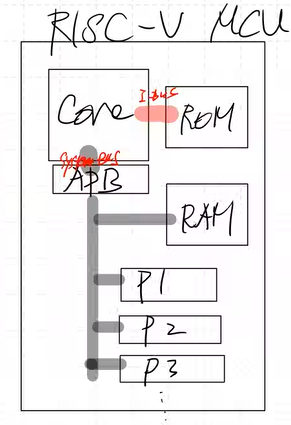 RISC-V MCU
Core
I-BUS
ROM
System BUS
APB
RAM
P1
P2
P3